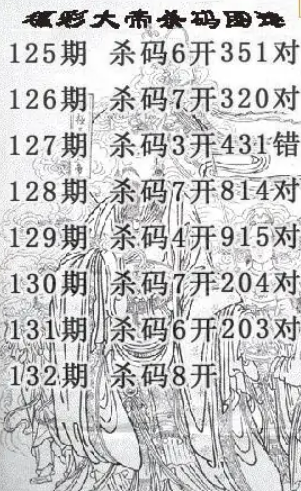 彩大帝杀码图
125期 杀码6开351对
126期 杀码7开320对
127期 杀码3开431错
128期 杀码7开814对
129期 杀码4开915对
130期 杀码7开204对
131期 杀码6开203对
132期 杀码8开